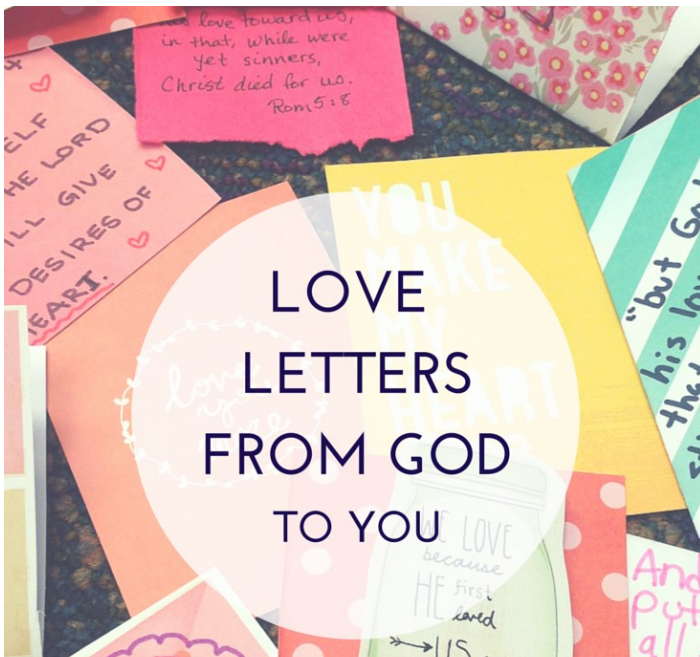 his love toward us,
in that, while were
yet sinners,
Christ died for us.
Rom 5:8
ELF
HE LORD
ILL GIVE
DESIRES OF
EART.
YOU
MAKE
MY
HEART
LOVE
LETTERS
FROM GOD
TO YOU
love
"but Go
his lov
that
WE LOVE
because
HE first
loved
US
And
put
all